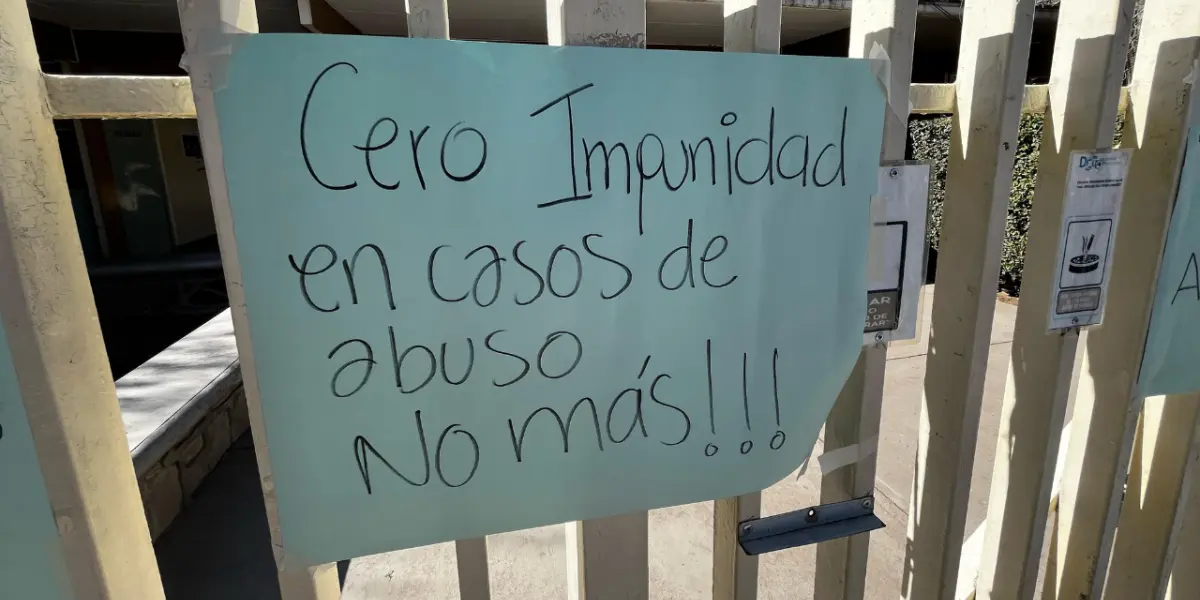 Cero Impunidad
en casos de
abuso
No más!!!
AR
O
DE
RAR"
A